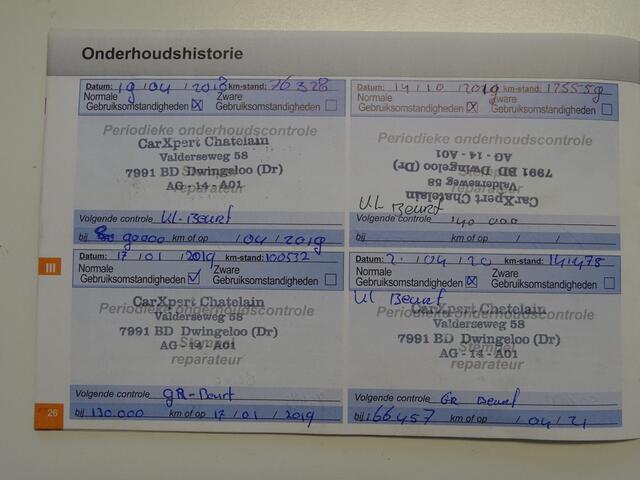 Onderhoudshistorie
Datum: 19 / 04 / 2018 km-stand: 76328
Normale Gebruiksomstandigheden Zware Gebruiksomstandigheden
Periodieke onderhoudscontrole
CarXpert Chatelain
Valderseweg 58
7991 BD Dwingeloo (Dr)
AG - 14 - A01
reparateur
Volgende controle Ul-Beurt
bij 90000 km of op / 04 / 2019
Datum: 14 / 10 / 2019 km-stand: 125559
Normale Gebruiksomstandigheden Zware Gebruiksomstandigheden
Periodieke onderhoudscontrole
CarXpert Chatelain
Valderseweg 58
7991 BD Dwingeloo (Dr)
AG - 14 - A01
UL Beurt
Volgende controle 140 000
bij km of op / /
III
Datum: 17 / 01 / 2019 km-stand: 100532
Normale Gebruiksomstandigheden Zware Gebruiksomstandigheden
Periodieke onderhoudscontrole
CarXpert Chatelain
Valderseweg 58
7991 BD Dwingeloo (Dr)
AG - 14 - A01
Stempel
reparateur
Volgende controle GR-Beurt
bij 130.000 km of op 17 / 01 / 2019
Datum: 2 / 04 / 20 km-stand: 141475
Normale Gebruiksomstandigheden Zware Gebruiksomstandigheden
Ul Beurt
Periodieke onderhoudscontrole
CarXpert Chatelain
Valderseweg 58
7991 BD Dwingeloo (Dr)
AG - 14 - A01
Stempel
reparateur
Volgende controle GR Beurt
bij 166457 km of op / 04 / 21
26